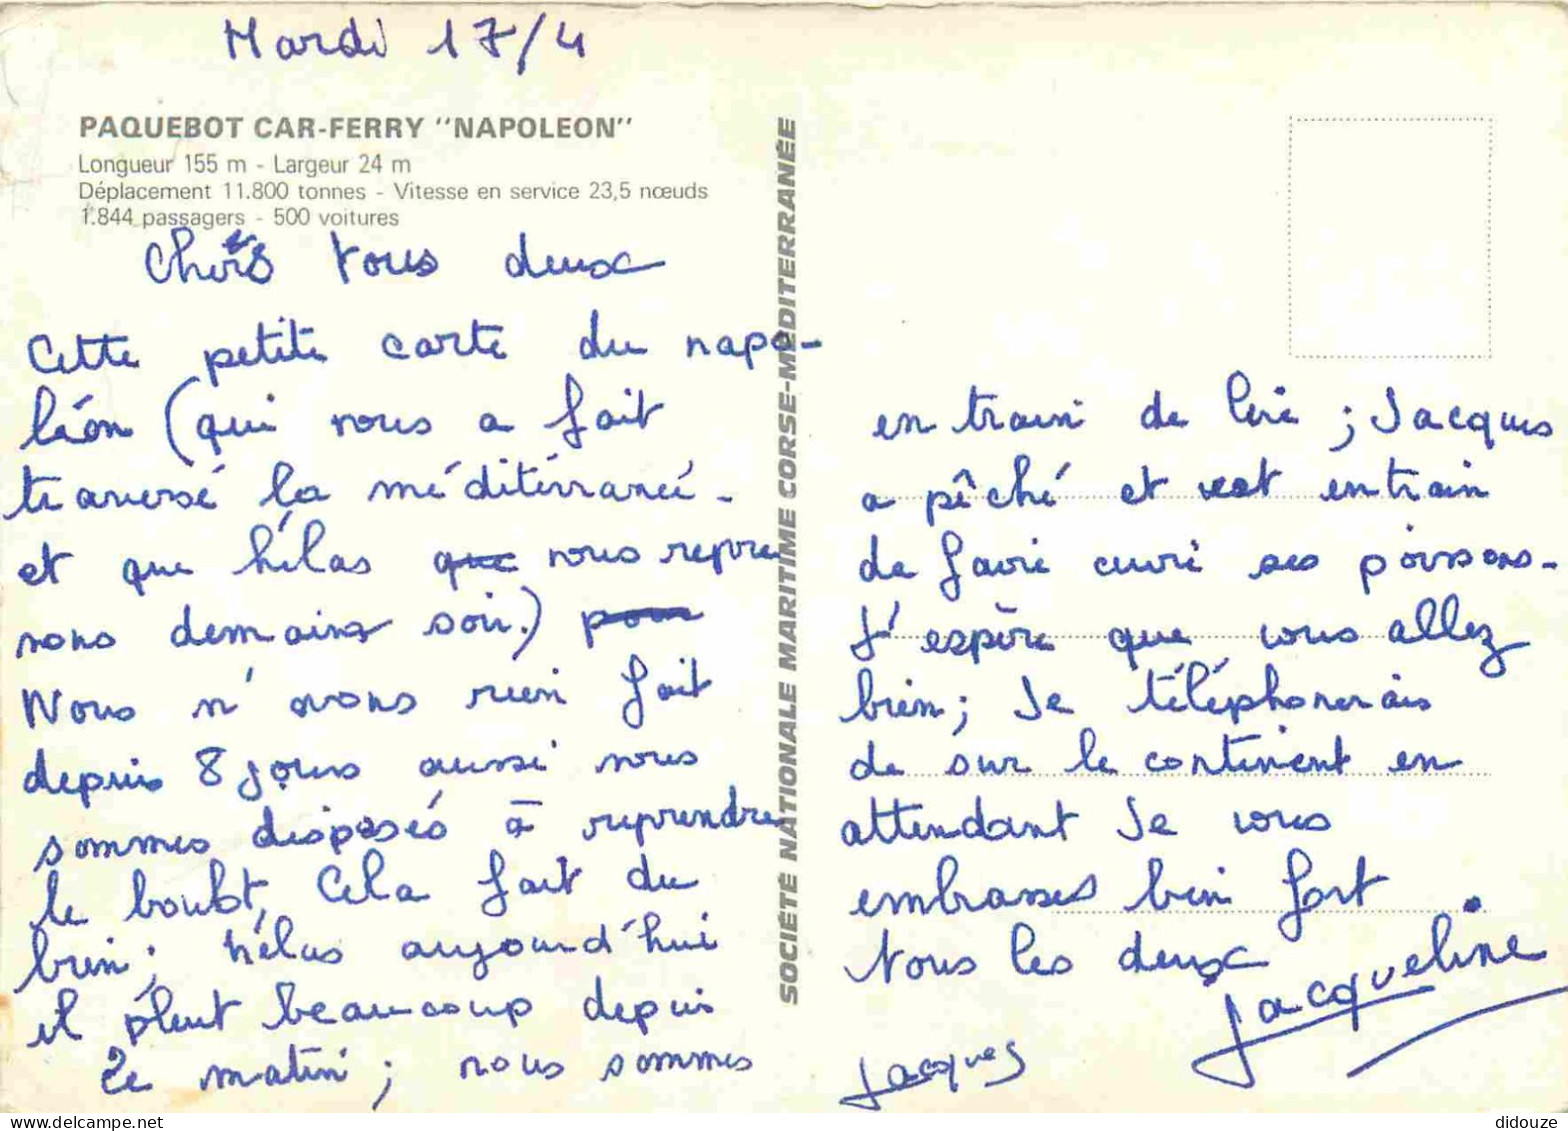 Mardi 17/4
PAQUEBOT CAR-FERRY "NAPOLEON"
Longueur 155 m - Largeur 24 m
Déplacement 11.800 tonnes - Vitesse en service 23,5 nœuds
1.844 passagers - 500 voitures
Chers tous deux
Cette petite carte du napo-
léon (qui nous a fait
traversé la méditérranée -
et que hélas que nous repre
nons demains soir.) pour
Nous n'avons rien fait
depuis 8 jours aussi nous
sommes disposés à reprendre
le boulot, Cela fait du
bien; hélas aujourd'hui
il pleut beaucoup depuis
le matin; nous sommes
SOCIÉTÉ NATIONALE MARITIME CORSE-MÉDITERRANÉE
en train de lire; Jacques
a pêché et est entrain
de faire cuire ses poissons-
J'espère que vous allez
bien; Je téléphonerais
de sur le continent en
attendant Je vous
embrasses bien fort
tous les deux
Jacqueline
Jacques
delcampe.net
didouze